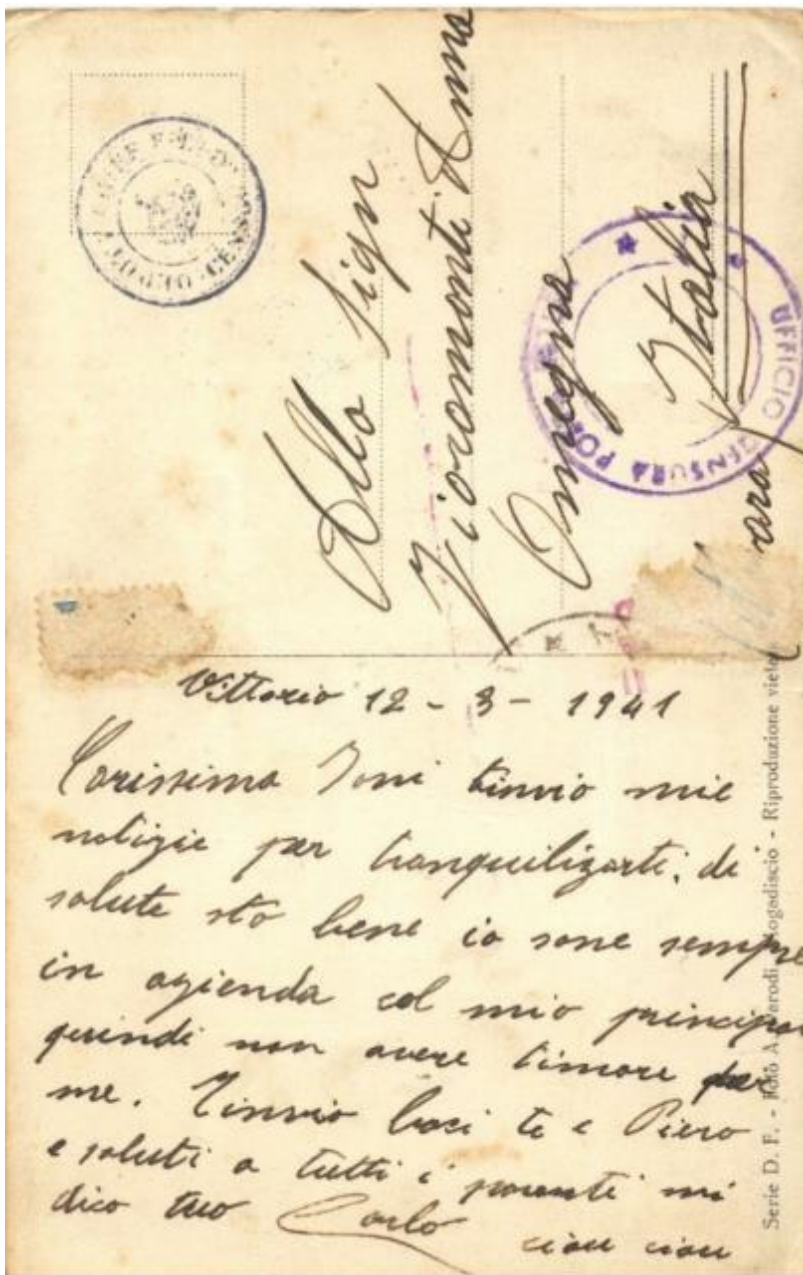 Alla Sign
Anna
Omegna
Italia
UFFICIO CENSURA POS
Vittorio 12 - 3 - 1941
Carissima Toni tinvio mie
notizie per tranquilizarti; di
salute sto bene io sono sempre
in azienda col mio principa
quindi non avere timore per
me. Tinvio baci te e Piero
e saluti a tutti i parenti mi
dico tuo Carlo
ciau ciau
Serie D. F. - Foto A. Parodi, Mogadiscio - Riproduzione vieta